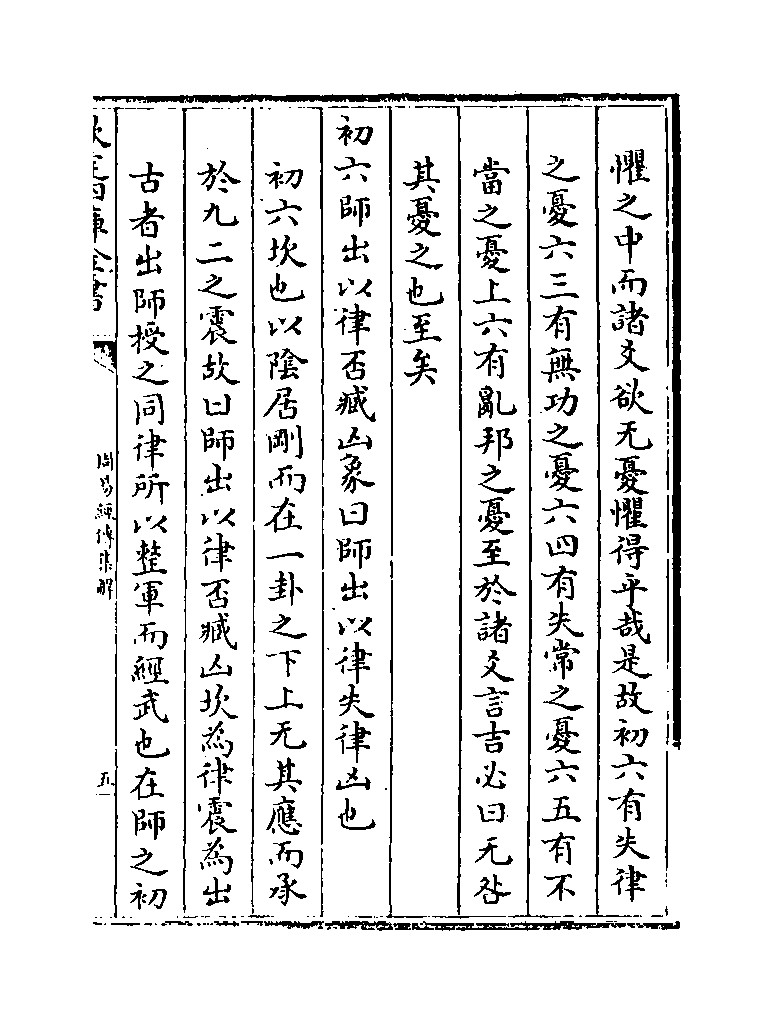 懼之中而諸爻欲无憂懼得乎哉是故初六有失律
之憂六三有無功之憂六四有失常之憂六五有不
當之憂上六有亂邦之憂至於諸爻言吉必曰无咎
其憂之也至矣
初六師出以律否臧凶象曰師出以律失律凶也
初六坎也以陰居剛而在一卦之下上无其應而承
於九二之震故曰師出以律否臧凶坎為律震為出
古者出師授之同律所以整軍而經武也在師之初
欽定四庫全書
周易經傳集解
五